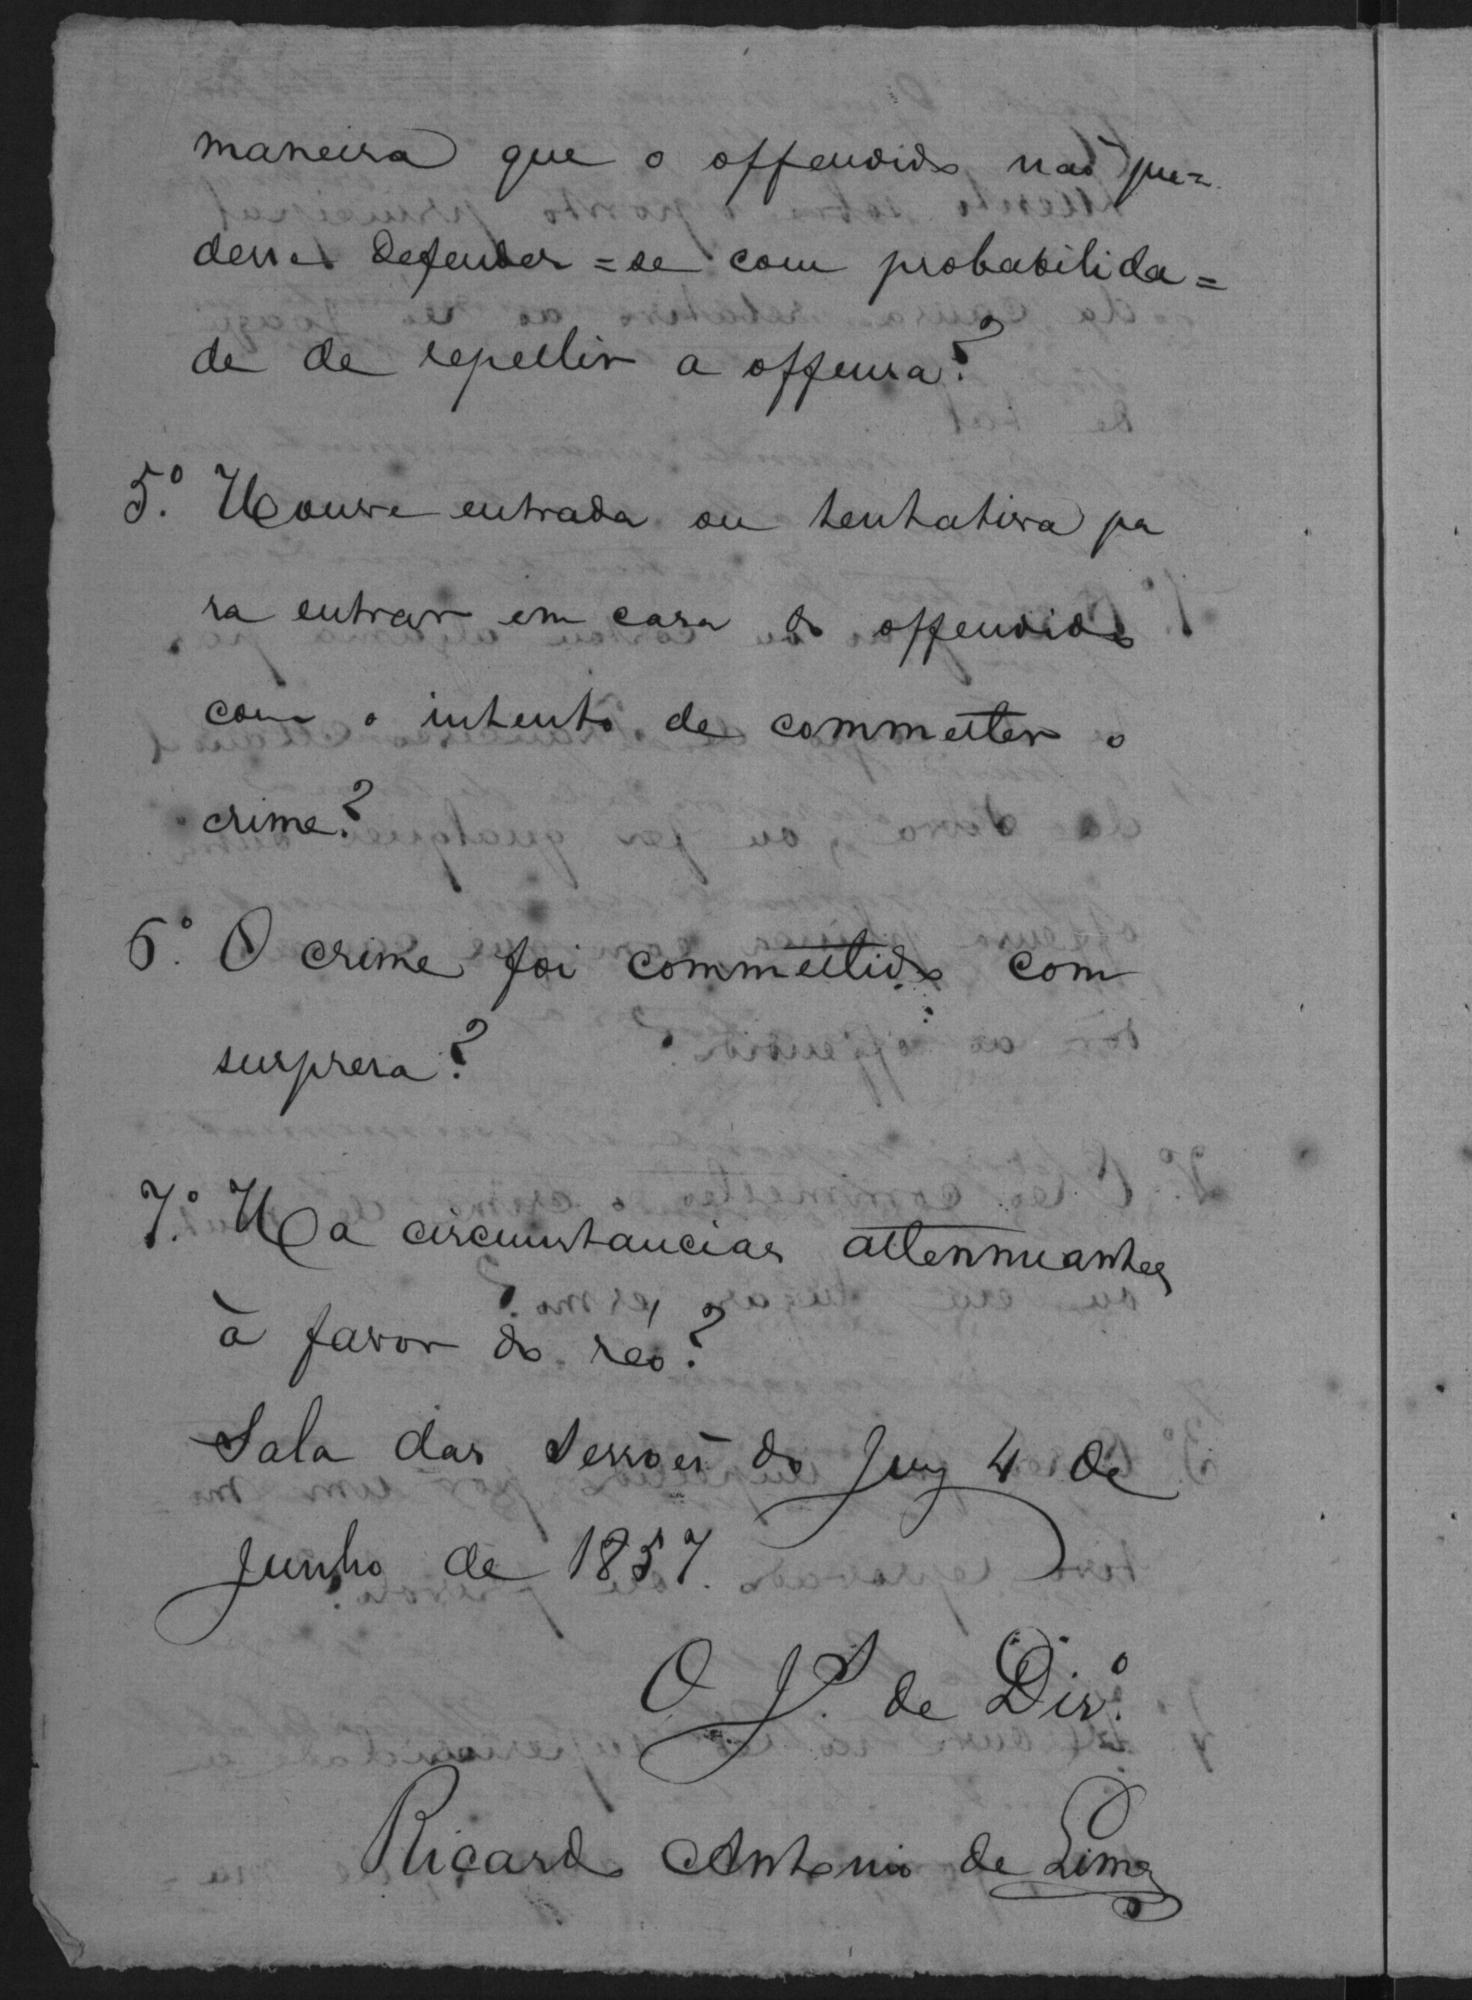 maneira que o offendido não pu=
desse defender=se com probabilida=
de de repellir a offensa?
5.º Houve entrada ou tentativa pa
ra entrar em casa do offendido
com o intento de commetter o
crime?
6.º O crime foi commettido com
surpresa?
7.º Ha circumstancias attennuantes
à favor do réo?
Sala das sessões do Jury 4 de
Junho de 1857.
O J. de Dir.º
Ricardo Antonio de Lima